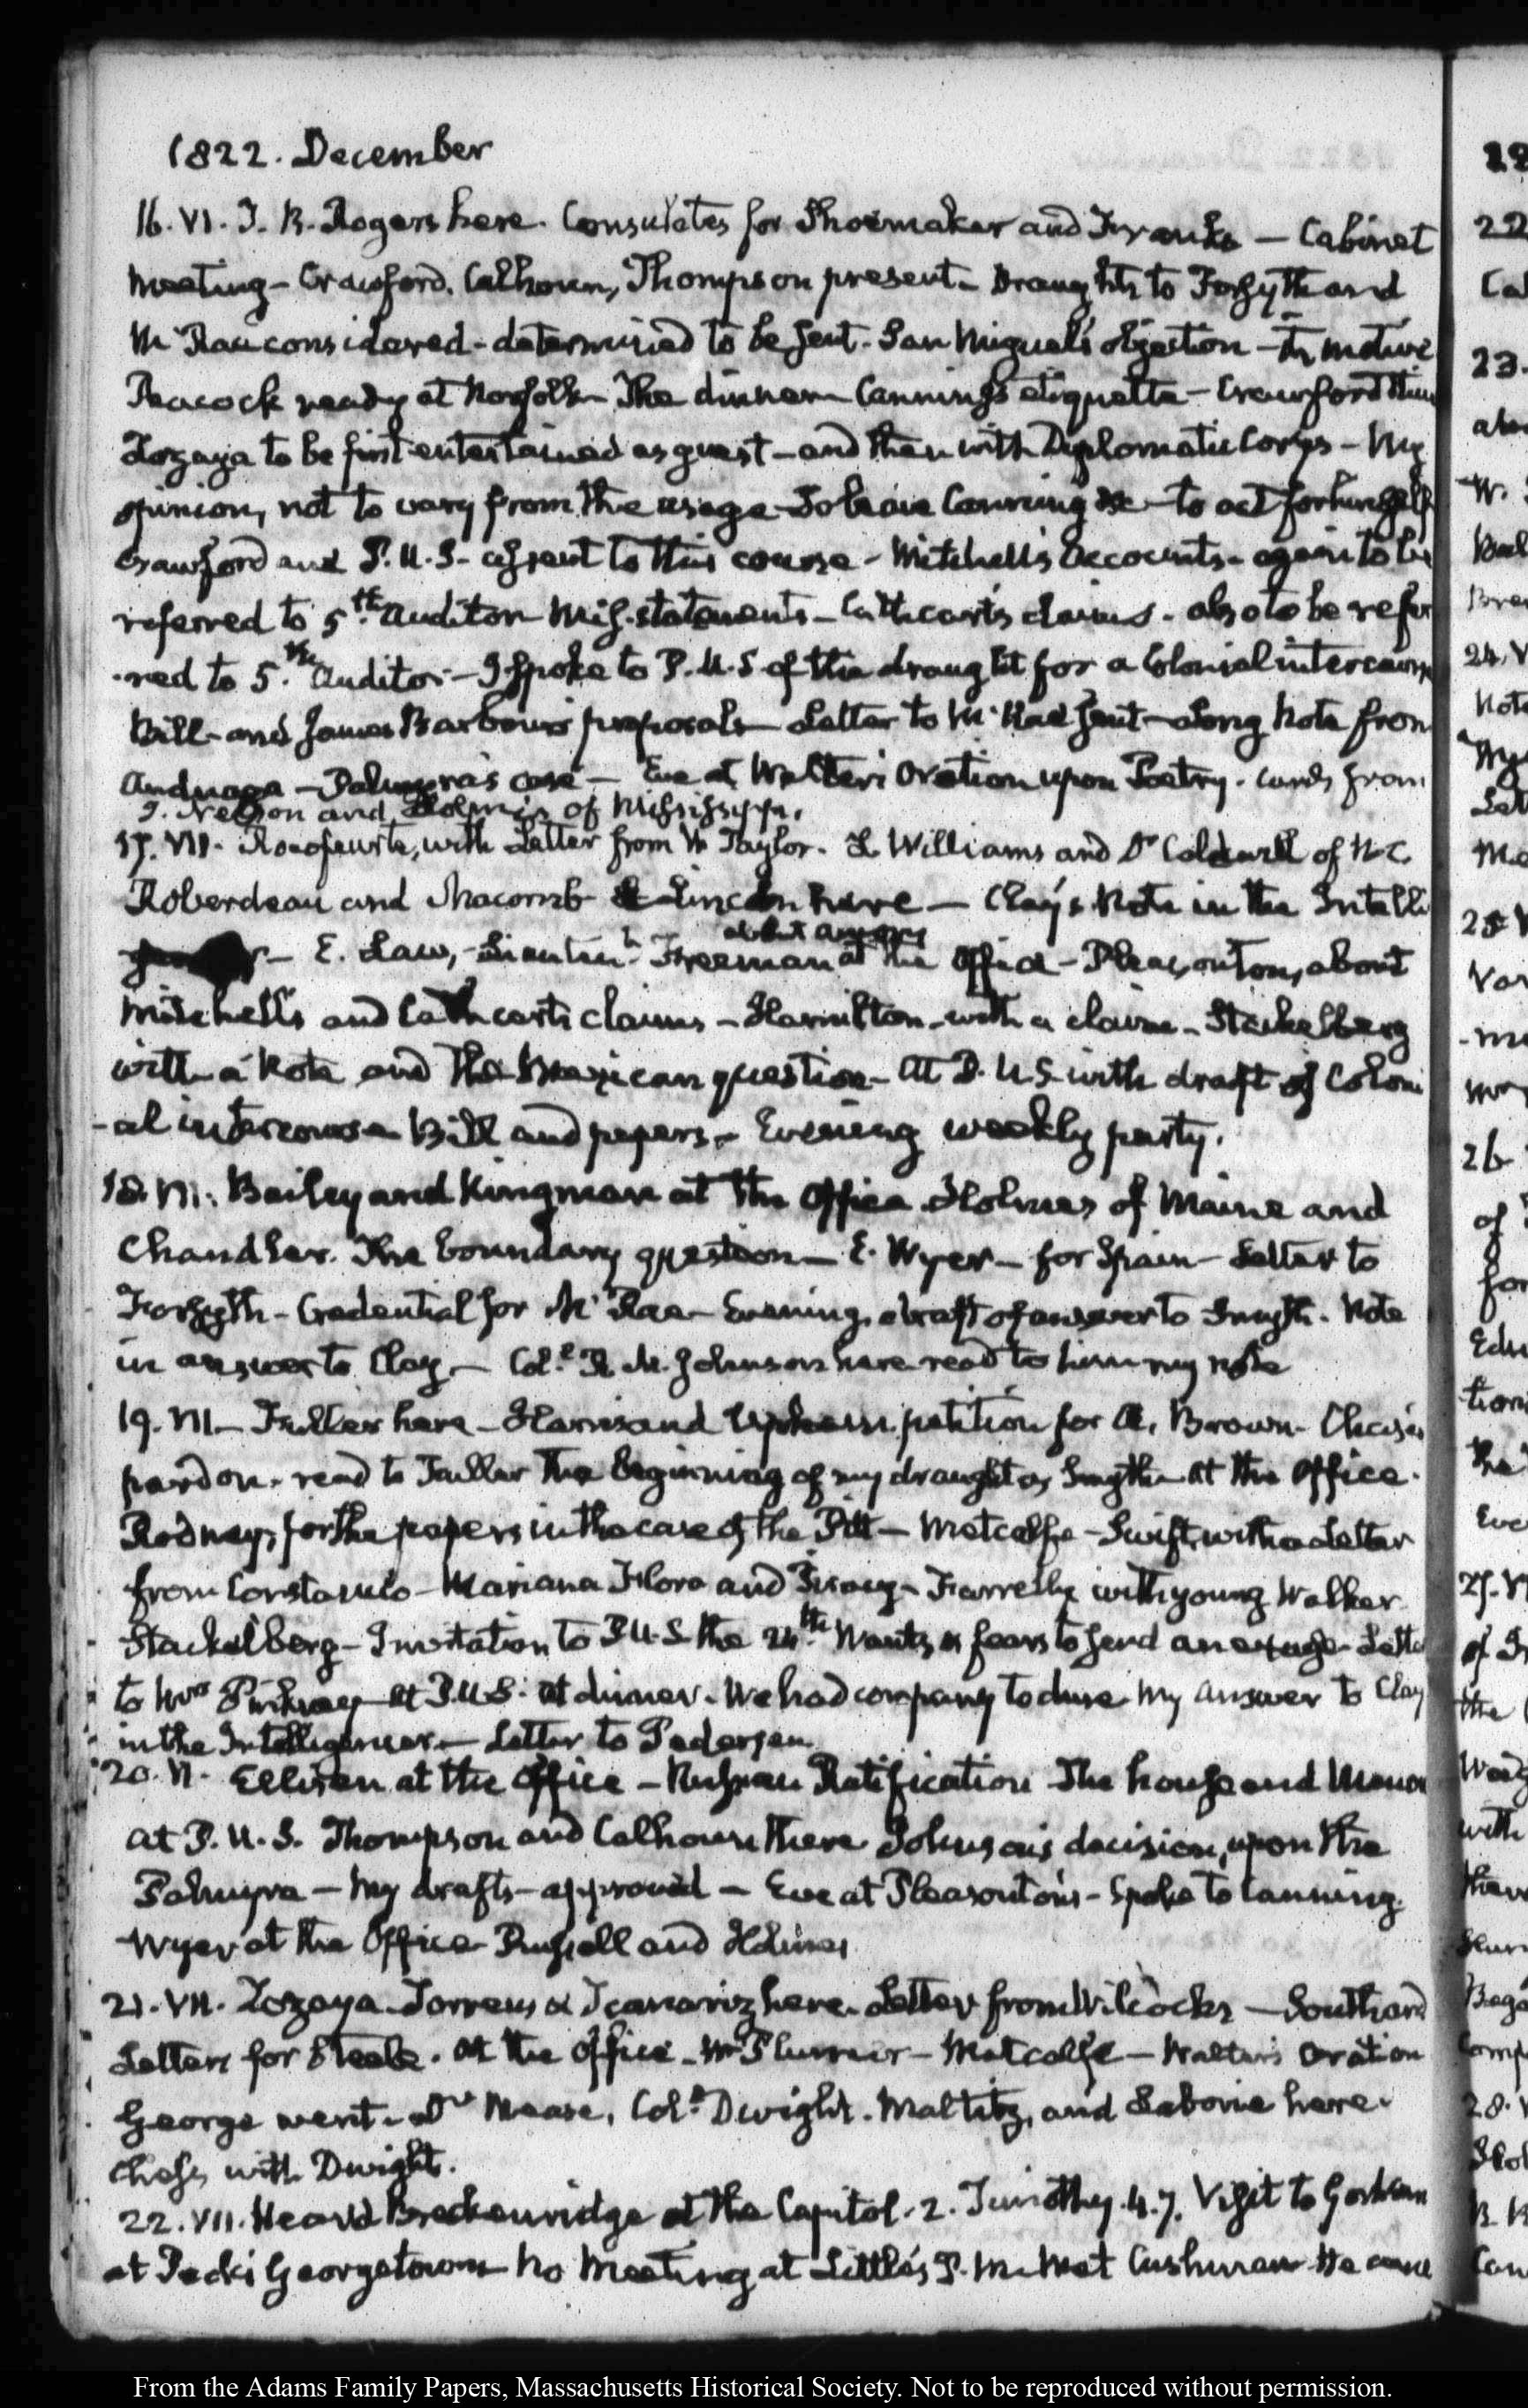 1822. December
16. VI. J. R. Rogers here. Consulates for Shoemaker and — Cabinet
Meeting - Crawford. Calhoun, Thompson present - Draughts to Forsyth and
McRae considered - determined to be sent. San Miguel's objection - motive
Peacock ready at Norfolk - The dinner Canning's etiquette - Crawford
Zozaya to be first entertained as guest - and then with Diplomatic Corps - My
opinion, not to vary from the usage - To leave Canning &c to act for himself
Crawford and P.U.S. assent to this course - Mitchell's Accounts - again to be
referred to 5th. Auditor Mis-statements - Cathcart's claims. also to be refer
-red to 5th. Auditor - I spoke to P.U.S of the draught for a Colonial intercourse
Bill - and James Barbour's proposals - Letter to McRae sent - long Note from
Anduaga - Palmyra's case - Eve at Walter's Oration upon Poetry. Cards from
J. Nelson and Holmes of Mississippi.
17. VII. with Letter from W Taylor. L Williams and Dr Caldwell of N.C.
Roberdeau and Macomb & Lincoln here — Clay's Note in the Intelli
- E. Law, - Lieutent. Freeman at the Office - Pleasonton, about
Mitchell's and Cathcart's claims - Hamilton - with a claim - Stackelberg
with a Note and the Mexican question - At P.U.S with draft of Coloni
-al intercourse Bill and papers - Evening weekly party.
18. VI. Bailey and Kingman at the Office Holmes of Maine and
Chandler. The boundary question - E. Wyer - for Spain - Letter to
Forsyth - Credential for McRae - Evening, draft of answer to Smyth. Note
in answer to Clay - Col.l R. M. Johnson here read to him my note
19. VII - Fuller here - Harris and Upham petition for A. Brown -
pardon. read to Fuller the beginning of my draught as Smyth - At the Office.
Rodney, for the papers in the case of the Pitt - Metcalfe - Swift, with a Letter
from Constancio - Mariana Flora and - Farrelly with young Walker
Stackelberg - Invitation to P.U.S. the 24th. Wants fears to send an Letter
to Mrs Pinkney - At P.U.S. at dinner. We had company to dine My answer to Clay
in the Intelligencer - Letter to Pedersen
20. VI. Ellisen at the Office - Russian Ratification - The house and
at P.U.S. Thompson and Calhoun there Johnson's decision, upon the
Palmyra - My drafts - approved - Eve at Pleasonton's - Spoke to Canning.
Wyer at the Office - Russell and Holmes
21. VII. Zozaya - Torrens & here. Letter from Wilcocks - Southard
Letters for Steele. At the Office - Mr Plumer - Metcalfe - Walter's Oration
George went. Dr Mease, Col.l Dwight. Maltitz, and Laborie here.
Chess with Dwight.
22. VII. Heard Breckenridge at the Capitol. 2. Timothy. 4. 7. Visit to Gorham
at Peck's Georgetown - No Meeting at Little's P.M. Met Cushman - He came
From the Adams Family Papers, Massachusetts Historical Society. Not to be reproduced without permission.